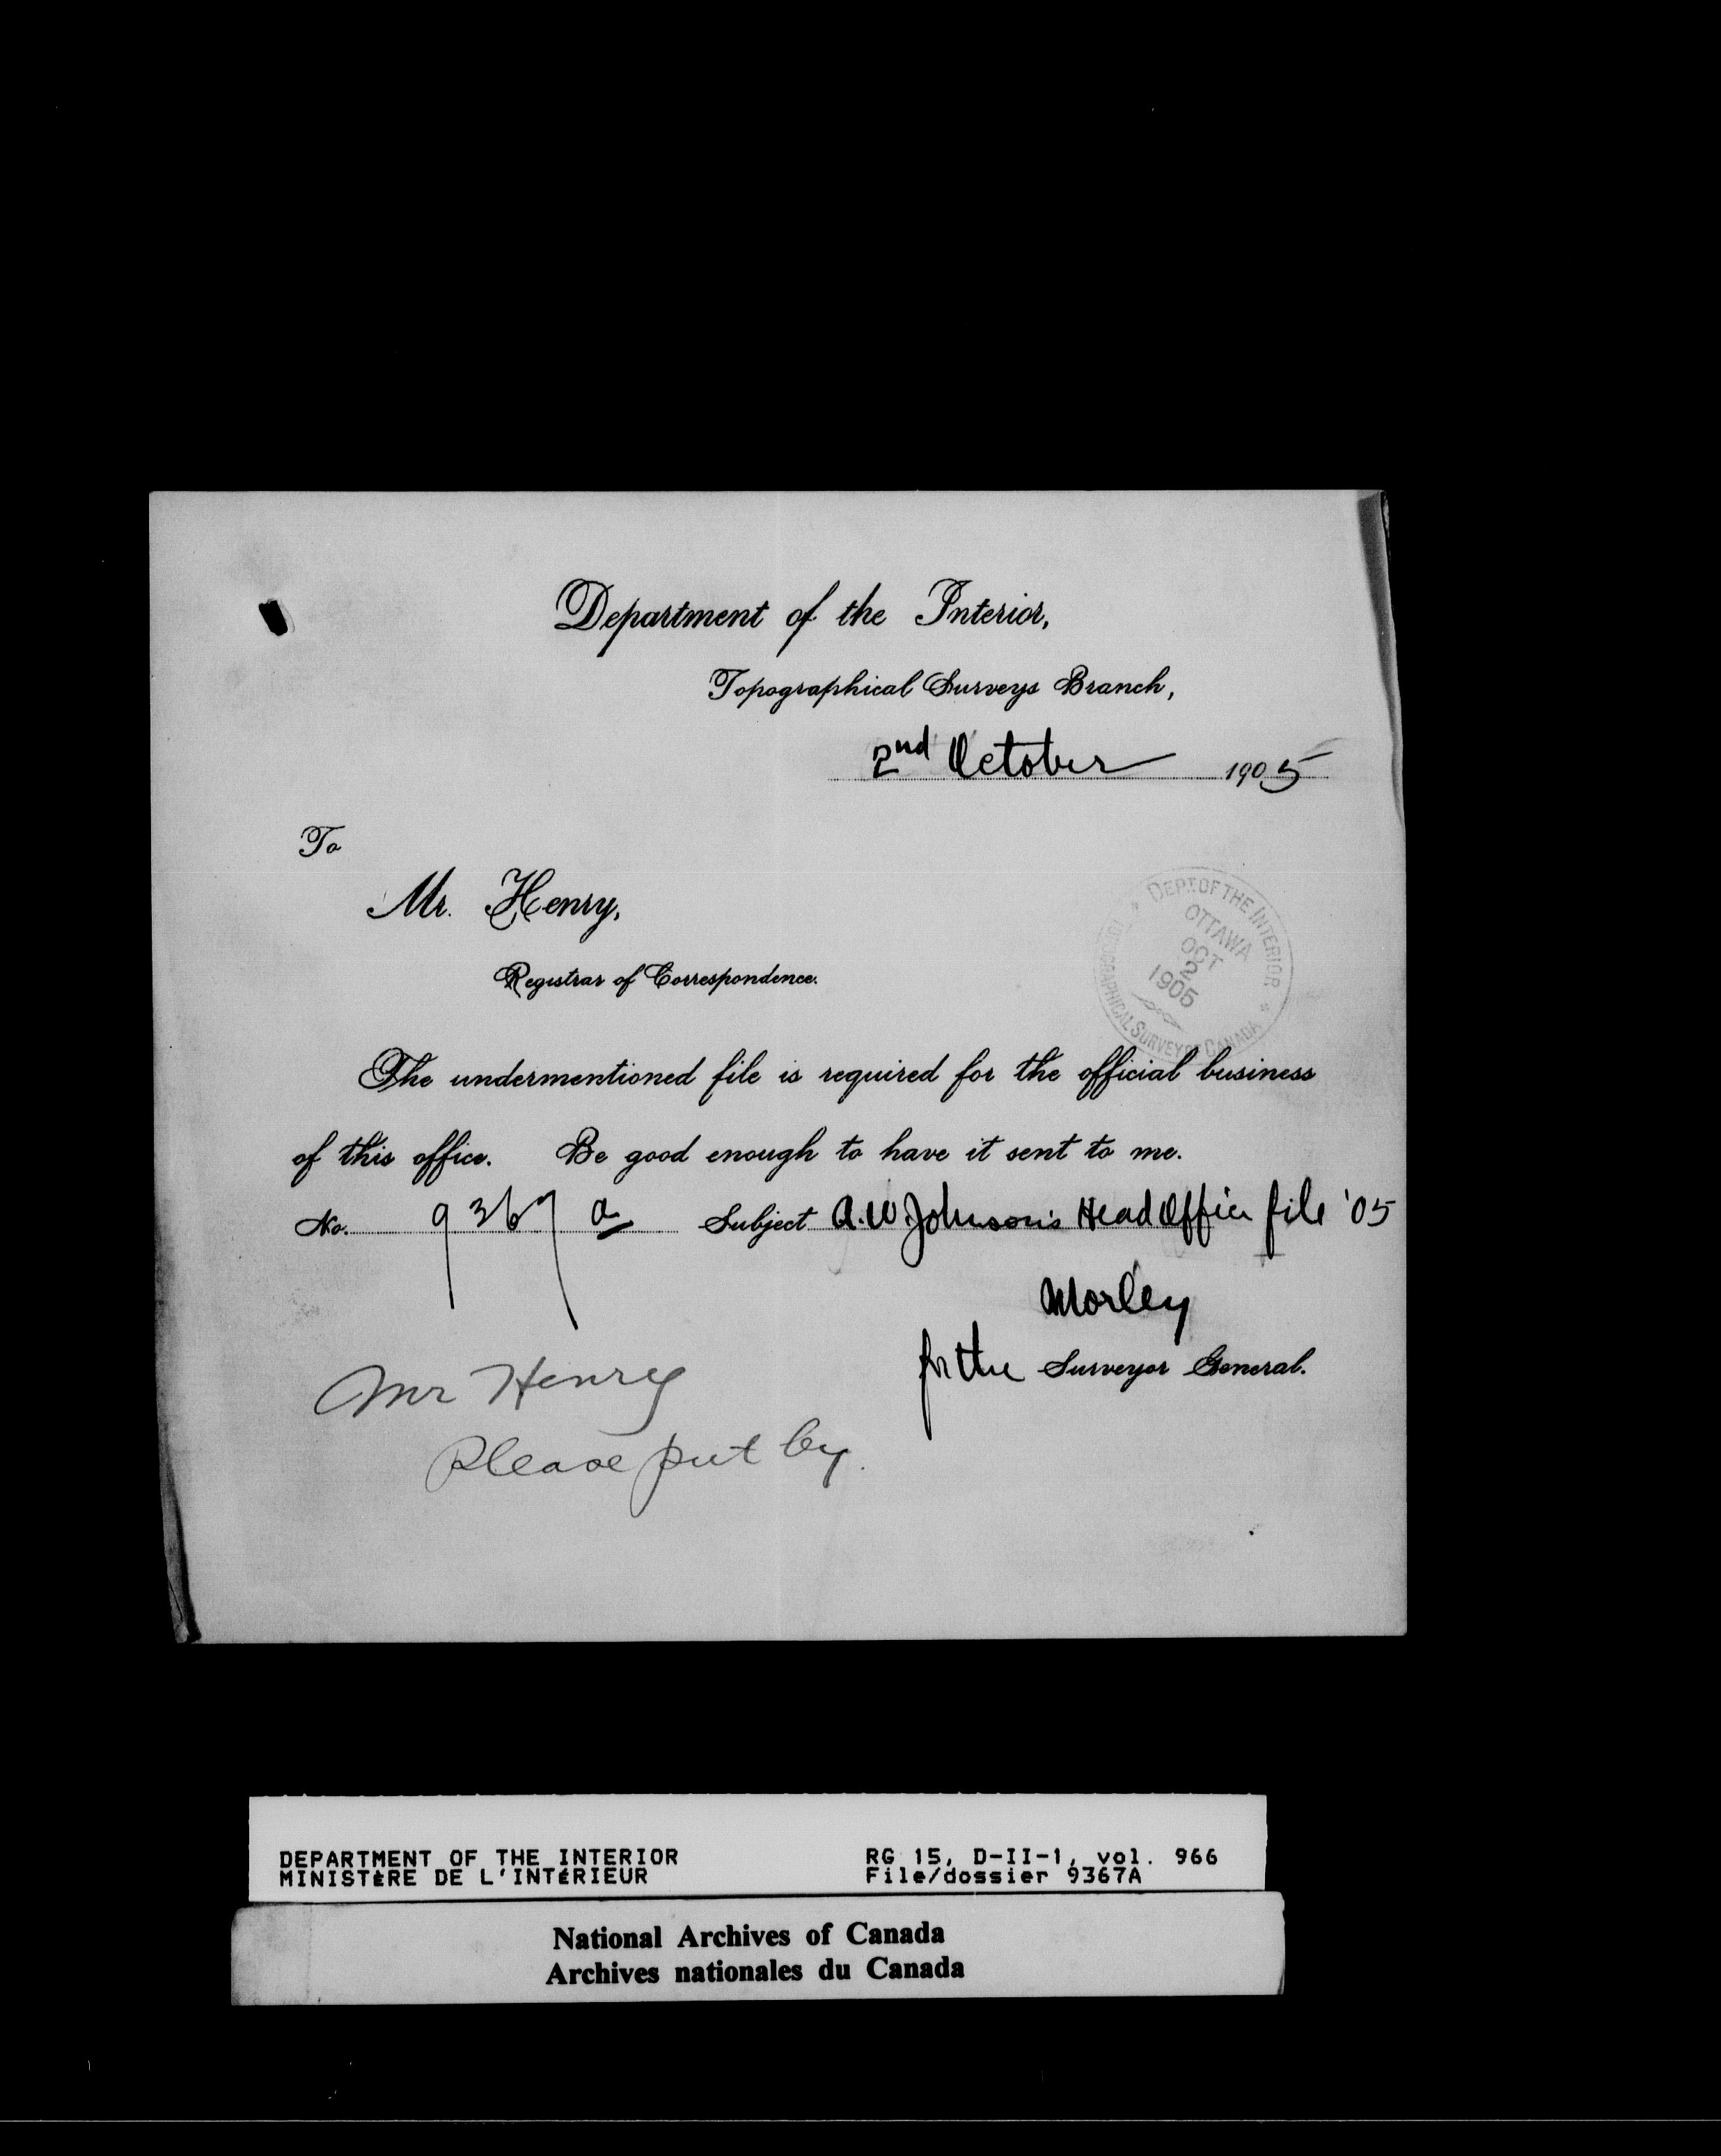 Department of the Interior,
Topographical Surveys Branch,
2nd October 1905
To
Mr. Henry,
Registrar of Correspondence.
DEPT. OF THE INTERIOR
OTTAWA
OCT
2
1905
TOPOGRAPHICAL SURVEY OF CANADA
The undermentioned file is required for the official business
of this office. Be good enough to have it sent to me.
No. 9367 a Subject A.W. Johnson's Head Office file '05
Morley
for the Surveyor General.
Mr Henry
Please put by.
DEPARTMENT OF THE INTERIOR RG 15, D-II-1, vol. 966
MINISTÈRE DE L'INTÉRIEUR File/dossier 9367A
National Archives of Canada
Archives nationales du Canada